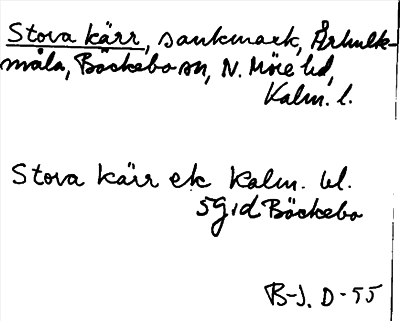 Stova kärr, sankmark, Århulk-
måla, Bäckebo sn, N. Möre hd,
Kalm. l.
Stova kärr ek Kalm. bl.
5G1d Bäckebo
B-J. D-55